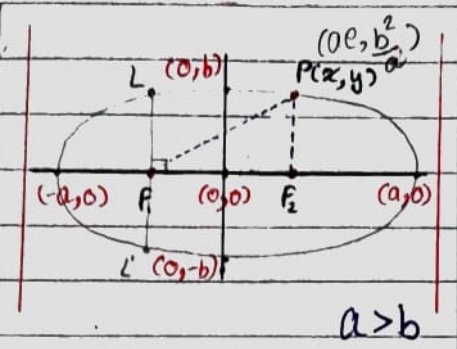 (ae, b²/a)
L (0,b) P(x,y)
(-a,0) F₁ (0,0) F₂ (a,0)
L' (0,-b)
a>b